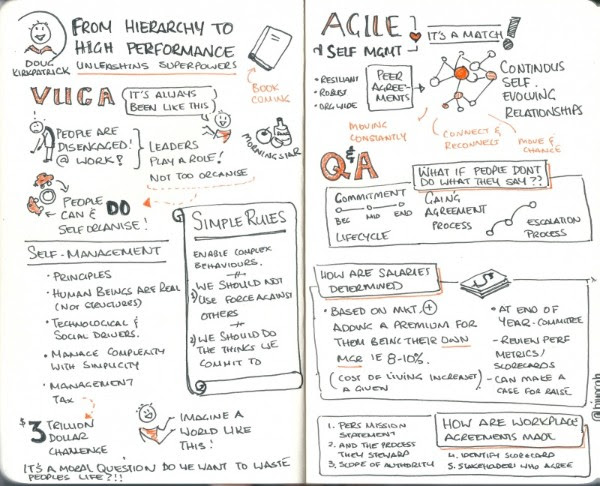 DOUG
KIRKPATRICK
FROM HIERARCHY TO
HIGH PERFORMANCE
UNLEASHING SUPERPOWERS
BOOK
COMING
VUCA
IT'S ALWAYS
BEEN LIKE THIS
PEOPLE ARE
DISENGAGED!
@ WORK!
LEADERS
PLAY A ROLE!
NOT TOO ORGANISE
MORNINGSTAR
PEOPLE
CAN & DO
SELF ORGANISE!
SELF-MANAGEMENT
• PRINCIPLES
• HUMAN BEINGS ARE REAL
(NOT STRUCTURES)
• TECHNOLOGICAL &
SOCIAL DRIVERS.
• MANAGE COMPLEXITY
WITH SIMPLICITY
• MANAGEMENT
TAX
SIMPLE RULES
ENABLE COMPLEX
BEHAVIOURS.
1) WE SHOULD NOT
USE FORCE AGAINST
OTHERS
2) WE SHOULD DO
THE THINGS WE
COMMIT TO
$3 TRILLION
DOLLAR
CHALLENGE
IMAGINE A
WORLD LIKE
THIS!
IT'S A MORAL QUESTION DO WE WANT TO WASTE
PEOPLES LIFE?!!
AGILE
& SELF MGMT
IT'S A MATCH!
• RESILIANT
• ROBUST
• ORG WIDE
PEER
AGREE-
MENTS
CONTINOUS
SELF.
EVOLVING
RELATIONSHIPS
MOVING
CONSTANTLY
CONNECT &
RECONNECT
MOVE &
CHANGE
Q&A
WHAT IF PEOPLE DON'T
DO WHAT THEY SAY??
COMMITMENT
BEG MID END
LIFECYCLE
GAING
AGREEMENT
PROCESS
ESCALATION
PROCESS
HOW ARE SALARIES
DETERMINED
• BASED ON MKT. +
ADDING A PREMIUM FOR
THEM BEING THEIR OWN
MGR IE 8-10%.
(COST OF LIVING INCREASE)
A GIVEN
• AT END OF
YEAR - COMMITTEE
- REVIEW PERF
METRICS/
SCORECARDS
- CAN MAKE A
CASE FOR RAISE
HOW ARE WORKPLACE
AGREEMENTS MADE
1. PERS MISSION
STATEMENT
2. AND THE PROCESS
THEY STEWARD
3. SCOPE OF AUTHORITY
4. IDENTIFY SCORECARD
5. STAKEHOLDERS WHO AGREE